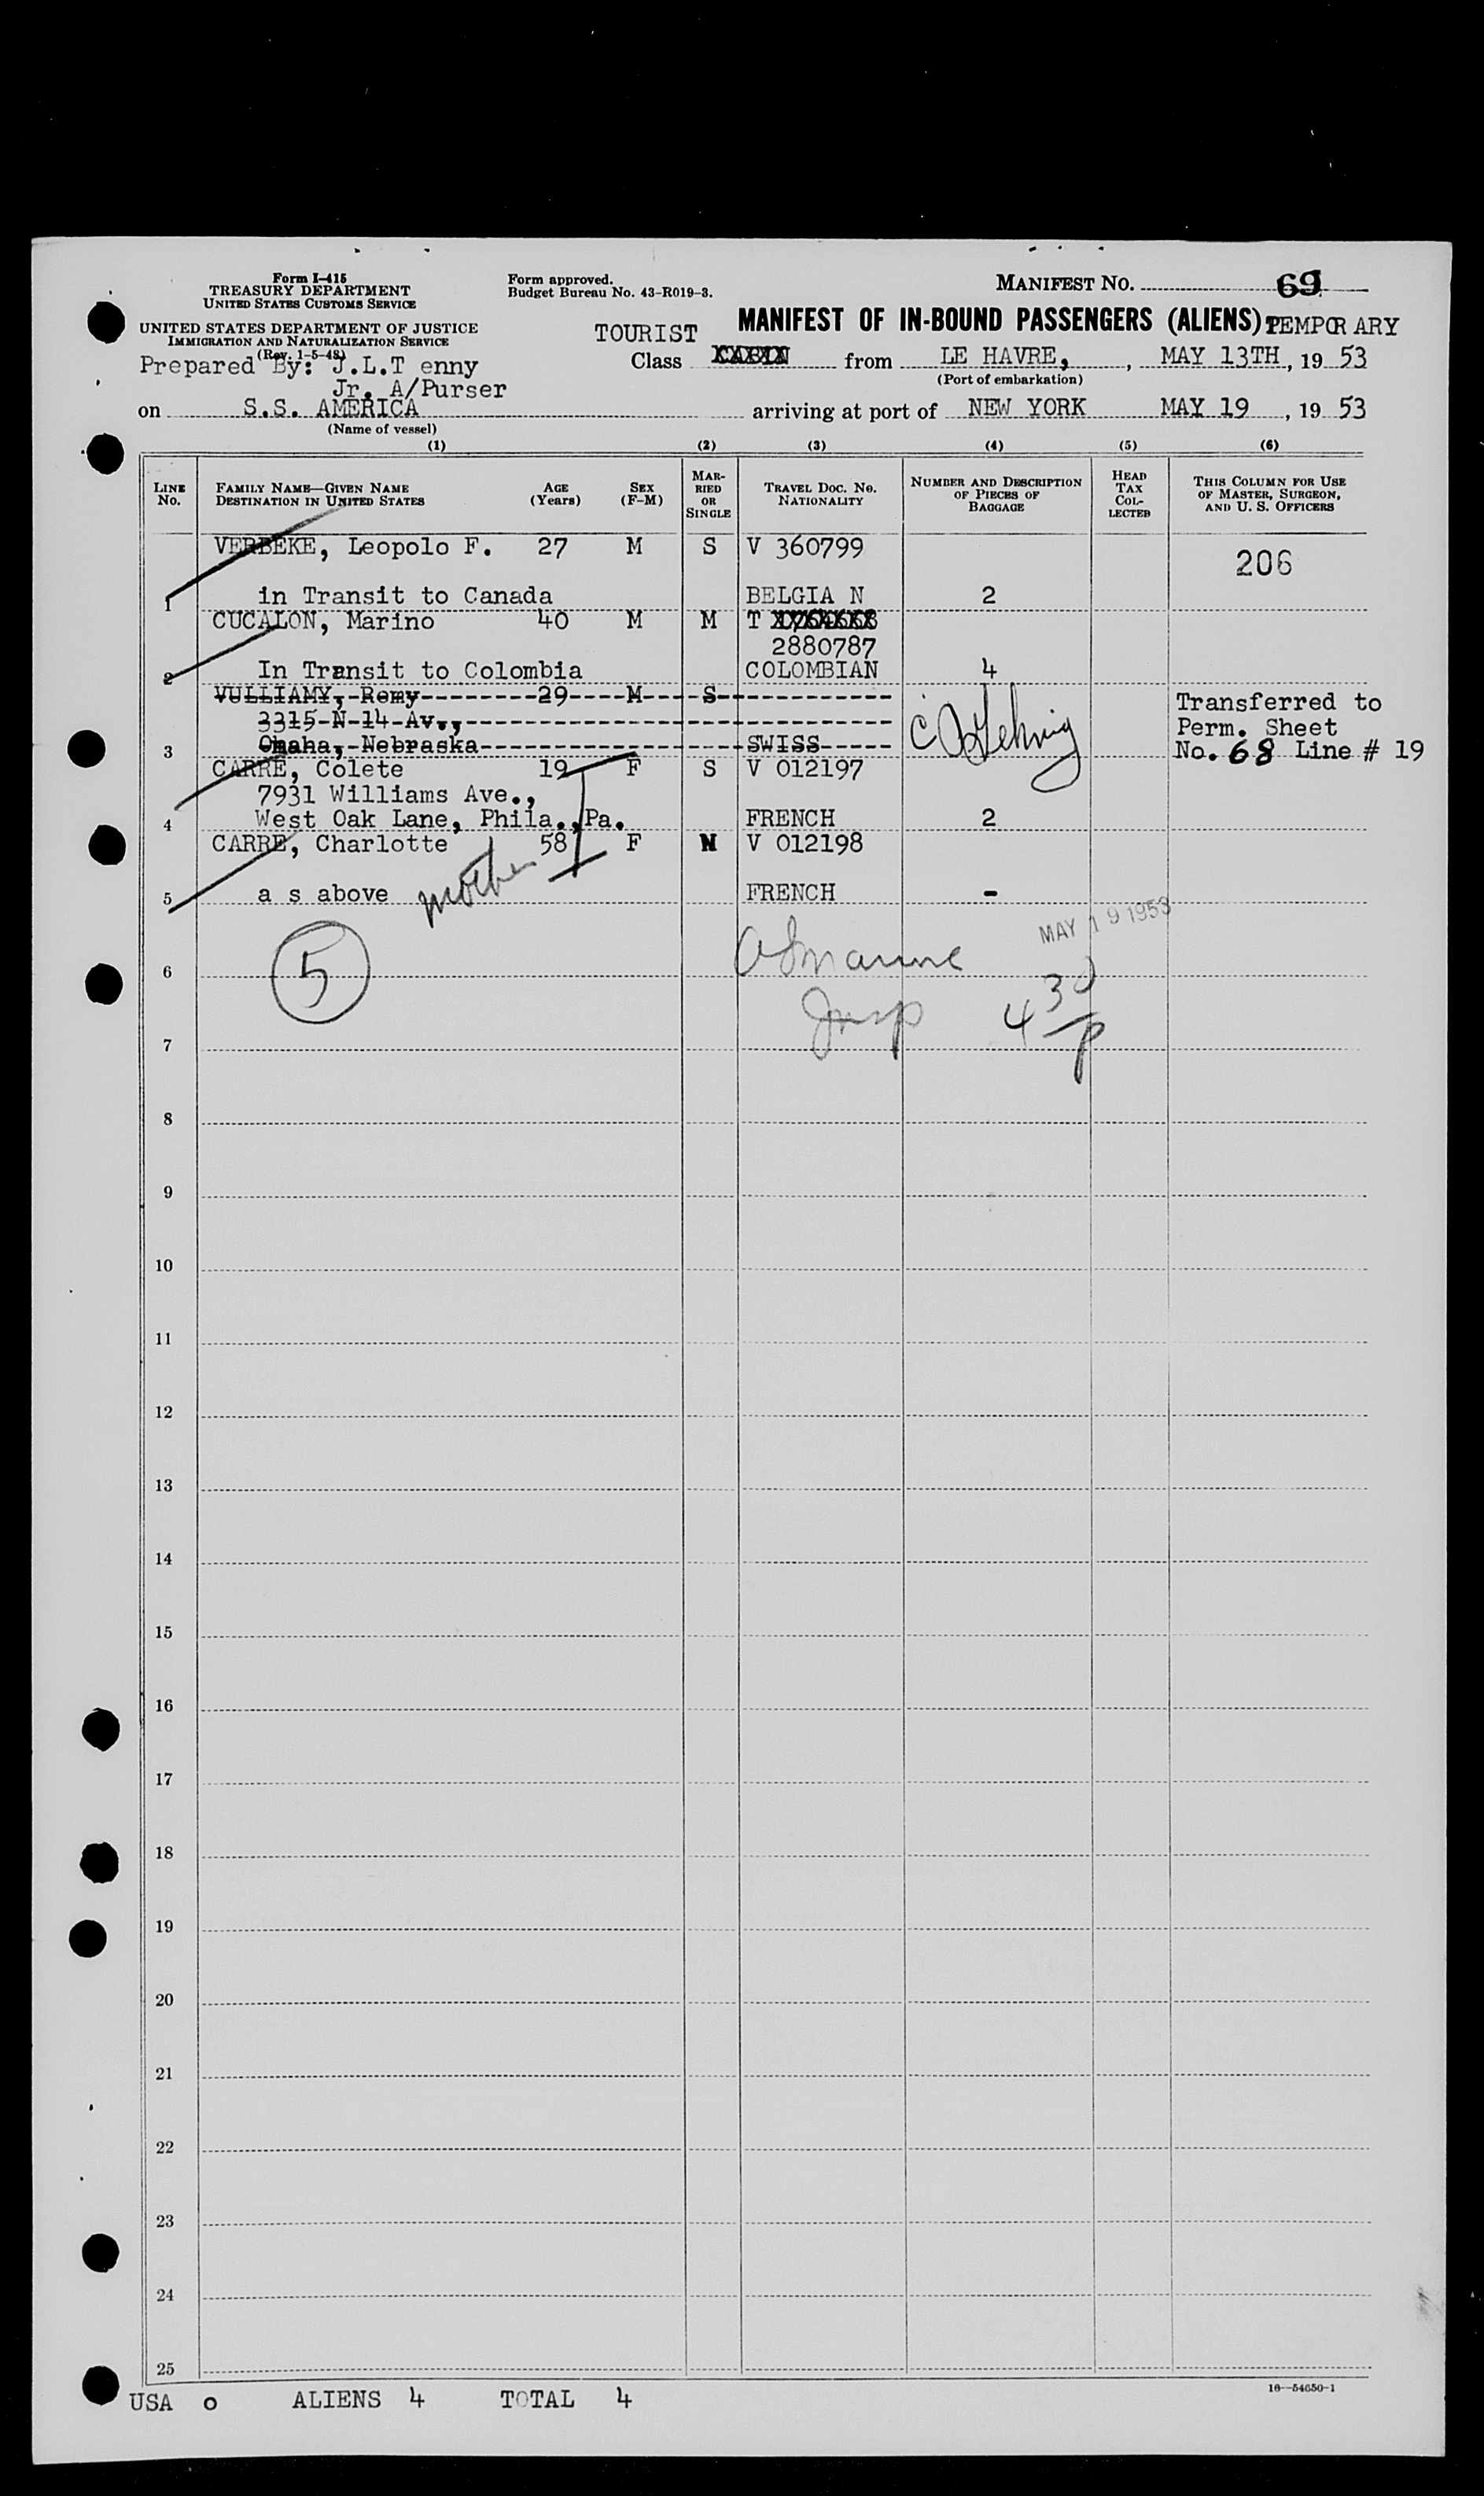 Form I-415
TREASURY DEPARTMENT
UNITED STATES CUSTOMS SERVICE
UNITED STATES DEPARTMENT OF JUSTICE
IMMIGRATION AND NATURALIZATION SERVICE
(Rev. 1-5-48)
Form approved.
Budget Bureau No. 43-R019-3.
MANIFEST No. 69
MANIFEST OF IN-BOUND PASSENGERS (ALIENS) TEMPOR ARY
Prepared By: J.L.T enny
Jr. A/Purser
TOURIST
Class CABIN from LE HAVRE, , MAY 13TH, 19 53
(Port of embarkation)
on S.S. AMERICA arriving at port of NEW YORK MAY 19 , 19 53
(Name of vessel)
(1) (2) (3) (4) (5) (6)
LINE No. FAMILY NAME—GIVEN NAME DESTINATION IN UNITED STATES AGE (Years) SEX (F-M) MARRIED OR SINGLE TRAVEL DOC. NO. NATIONALITY NUMBER AND DESCRIPTION OF PIECES OF BAGGAGE HEAD TAX COLLECTED THIS COLUMN FOR USE OF MASTER, SURGEON, AND U. S. OFFICERS
VERBEKE, Leopolo F. 27 M S V 360799 206
1 in Transit to Canada BELGIA N 2
CUCALON, Marino 40 M M T
2880787
2 In Transit to Colombia COLOMBIAN 4
VULLIAMY, Remy 29 M S Transferred to
3315 N 14 Av., Perm. Sheet
3 Omaha, Nebraska SWISS No. 68 Line # 19
CARRE, Colete 19 F S V 012197
7931 Williams Ave.,
4 West Oak Lane, Phila., Pa. FRENCH 2
CARRE, Charlotte 58 F M V 012198
5 a s above mother FRENCH -
MAY 19 1953
6 5
Insp 4 30 p
7
8
9
10
11
12
13
14
15
16
17
18
19
20
21
22
23
24
25
16—54650-1
USA o ALIENS 4 TOTAL 4